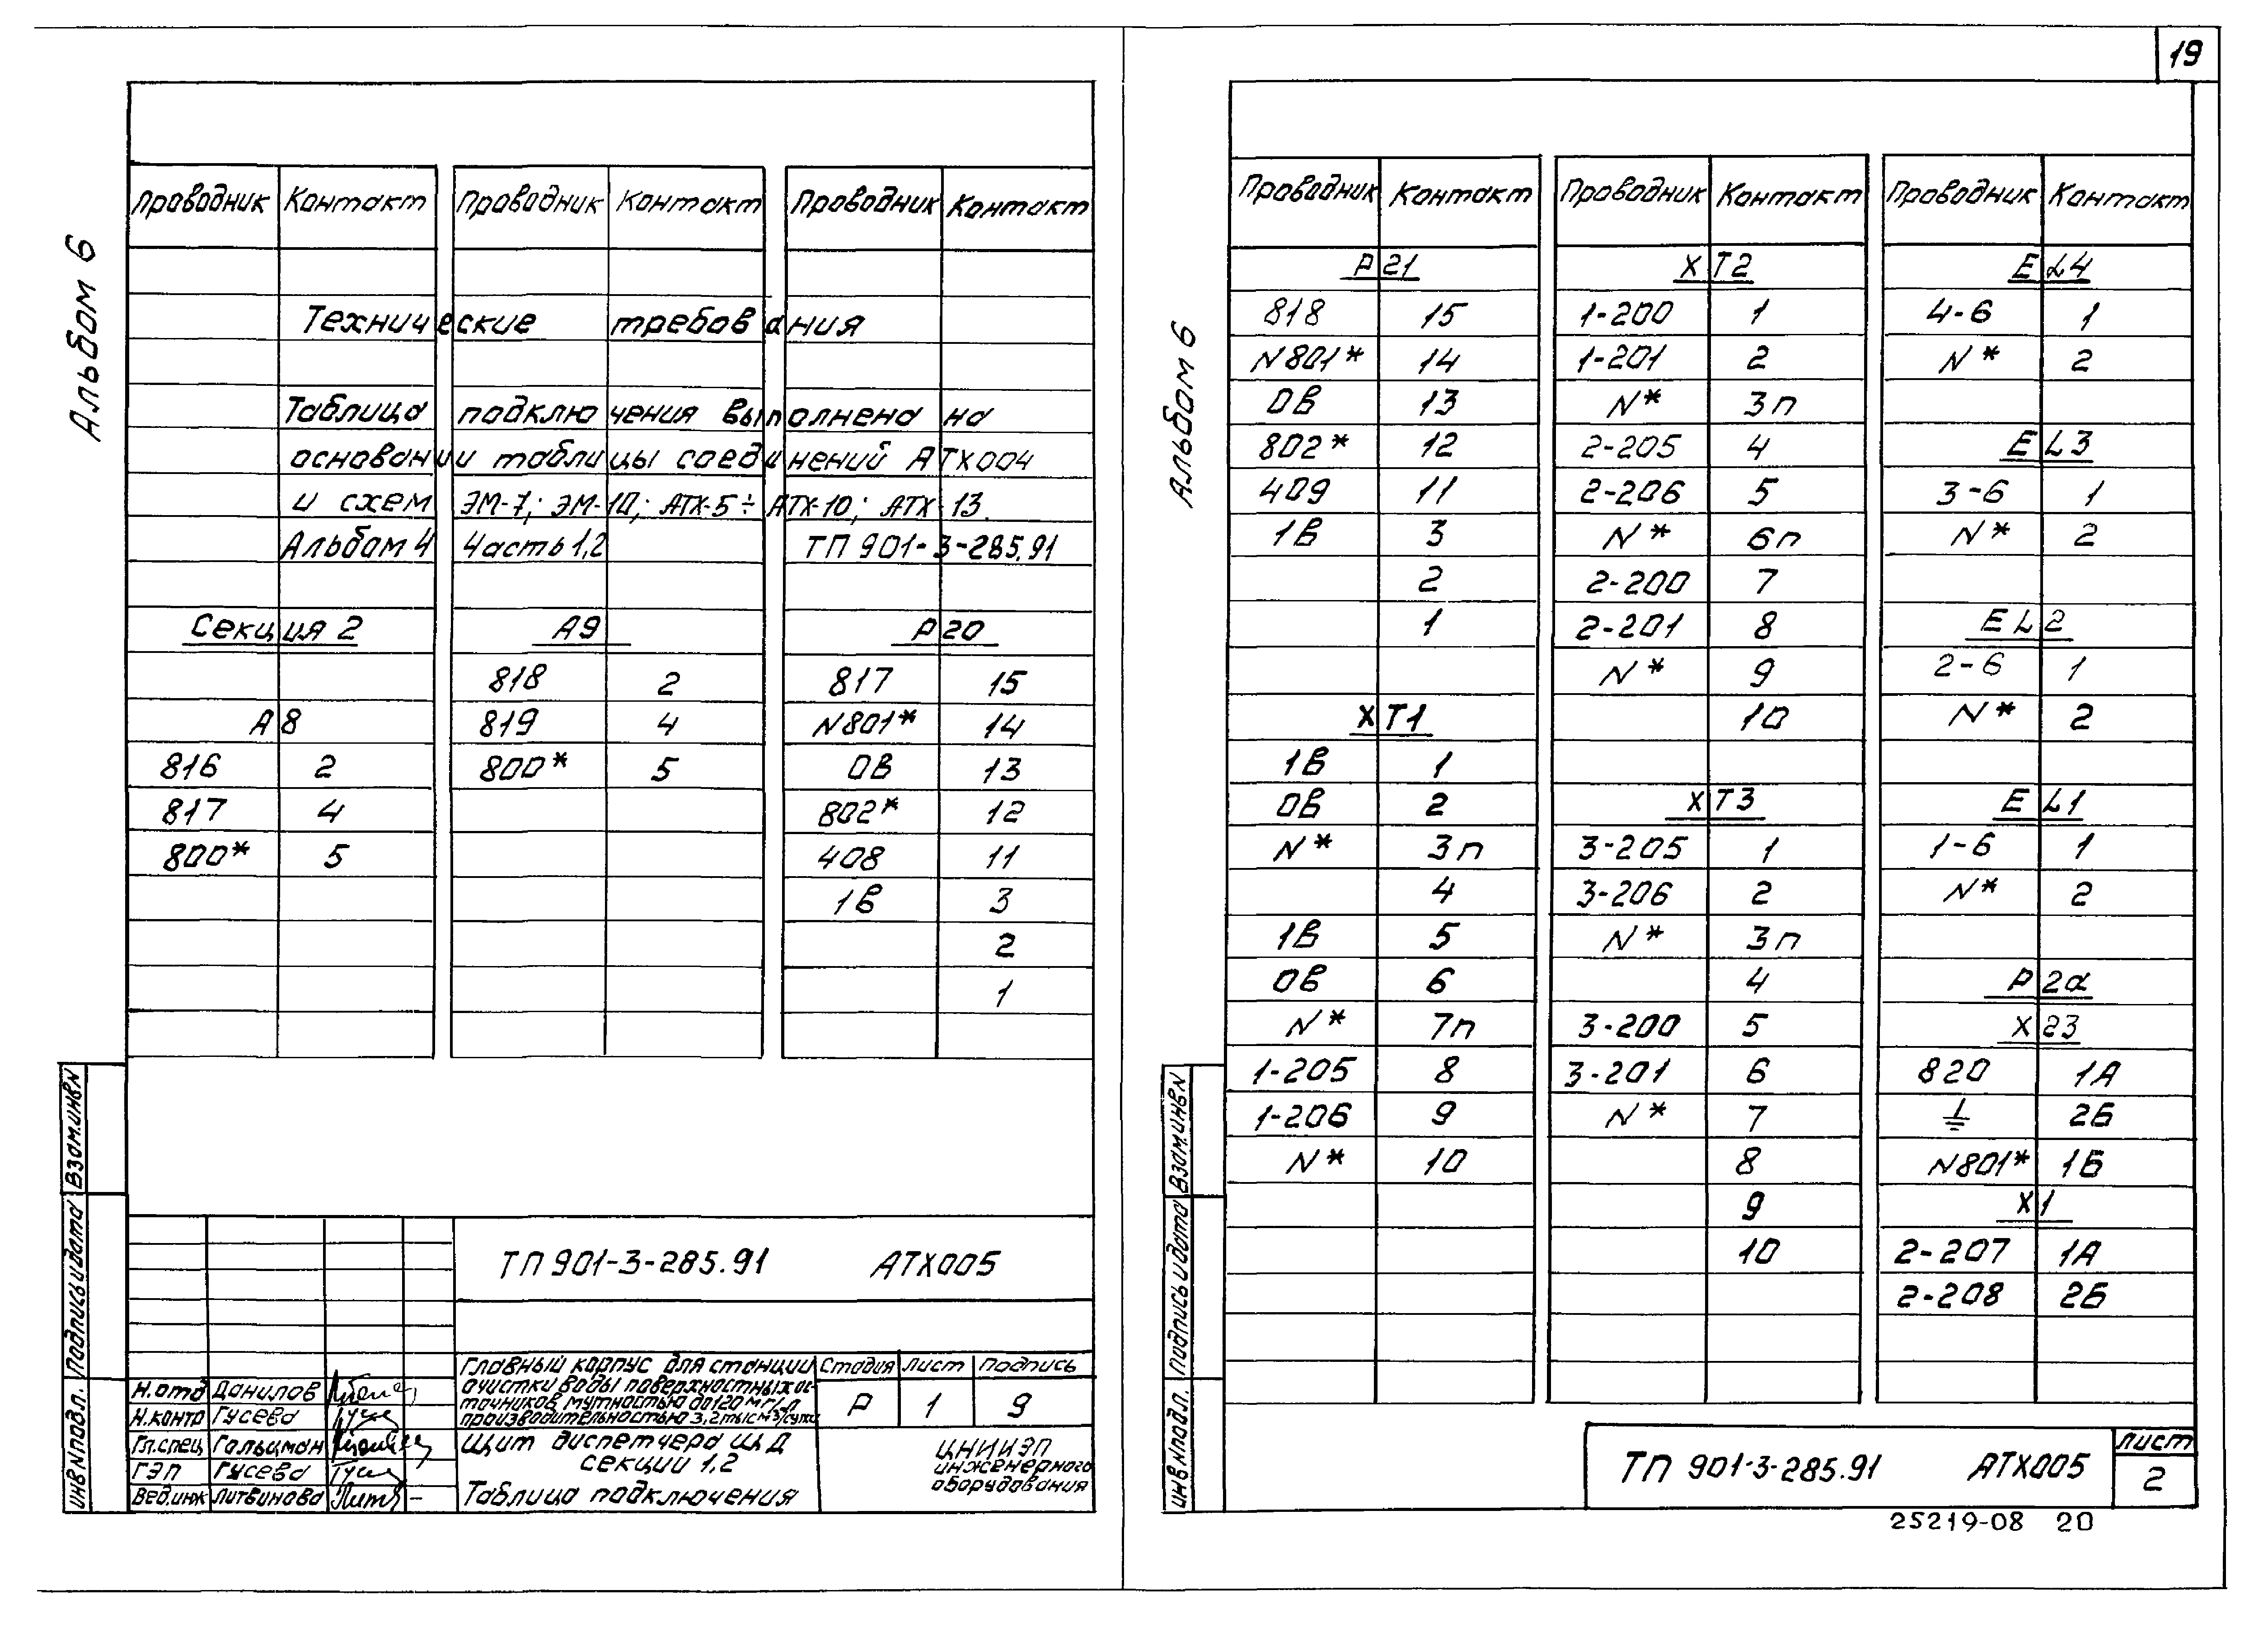 19
Альбом 6
Проводник Контакт Проводник Контакт Проводник Контакт
Технические требования
Таблица подключения выполнена на
основании таблицы соединений АТХ004
и схем ЭМ-7; ЭМ-10; АТХ-5÷АТХ-10; АТХ-13.
Альбом 4 Часть 1,2 ТП 901-3-285.91
Секция 2 А9 Р20
818 2 817 15
А8 819 4 N801* 14
816 2 800* 5 0В 13
817 4 802* 12
800* 5 408 11
1В 3
2
1
Взам.инв.N
Подпись и дата
Инв.Nподл.
ТП 901-3-285.91 АТХ005
Главный корпус для станции
очистки воды поверхностных ис-
точников мутностью до 120 мг/л
производительностью 3,2 тыс м3/сутки
Стадия Лист Подпись
Р 1 9
Н.отд Данилов
Н.контр Гусева
Гл.спец Гальцман
ГЭП Гусева
Вед.инж Литвинова
Щит диспетчера ЩД
секции 1,2
Таблица подключения
ЦНИИЭП
инженерного
оборудования
Альбом 6
Проводник Контакт Проводник Контакт Проводник Контакт
Р21 ХТ2 EL4
818 15 1-200 1 4-6 1
N801* 14 1-201 2 N* 2
0В 13 N* 3п
802* 12 2-205 4 EL3
409 11 2-206 5 3-6 1
1В 3 N* 6п N* 2
2 2-200 7
1 2-201 8 EL2
N* 9 2-6 1
ХТ1 10 N* 2
1В 1
0В 2 ХТ3 EL1
N* 3п 3-205 1 1-6 1
4 3-206 2 N* 2
1В 5 N* 3п
0В 6 4 Р2а
N* 7п 3-200 5 Х23
1-205 8 3-201 6 820 1А
1-206 9 N* 7 ⏚ 2Б
N* 10 8 N801* 1Б
9 Х1
10 2-207 1А
2-208 2Б
Взам.инв.N
Подпись и дата
Инв.Nподл.
ТП 901-3-285.91 АТХ005
Лист
2
25219-08 20